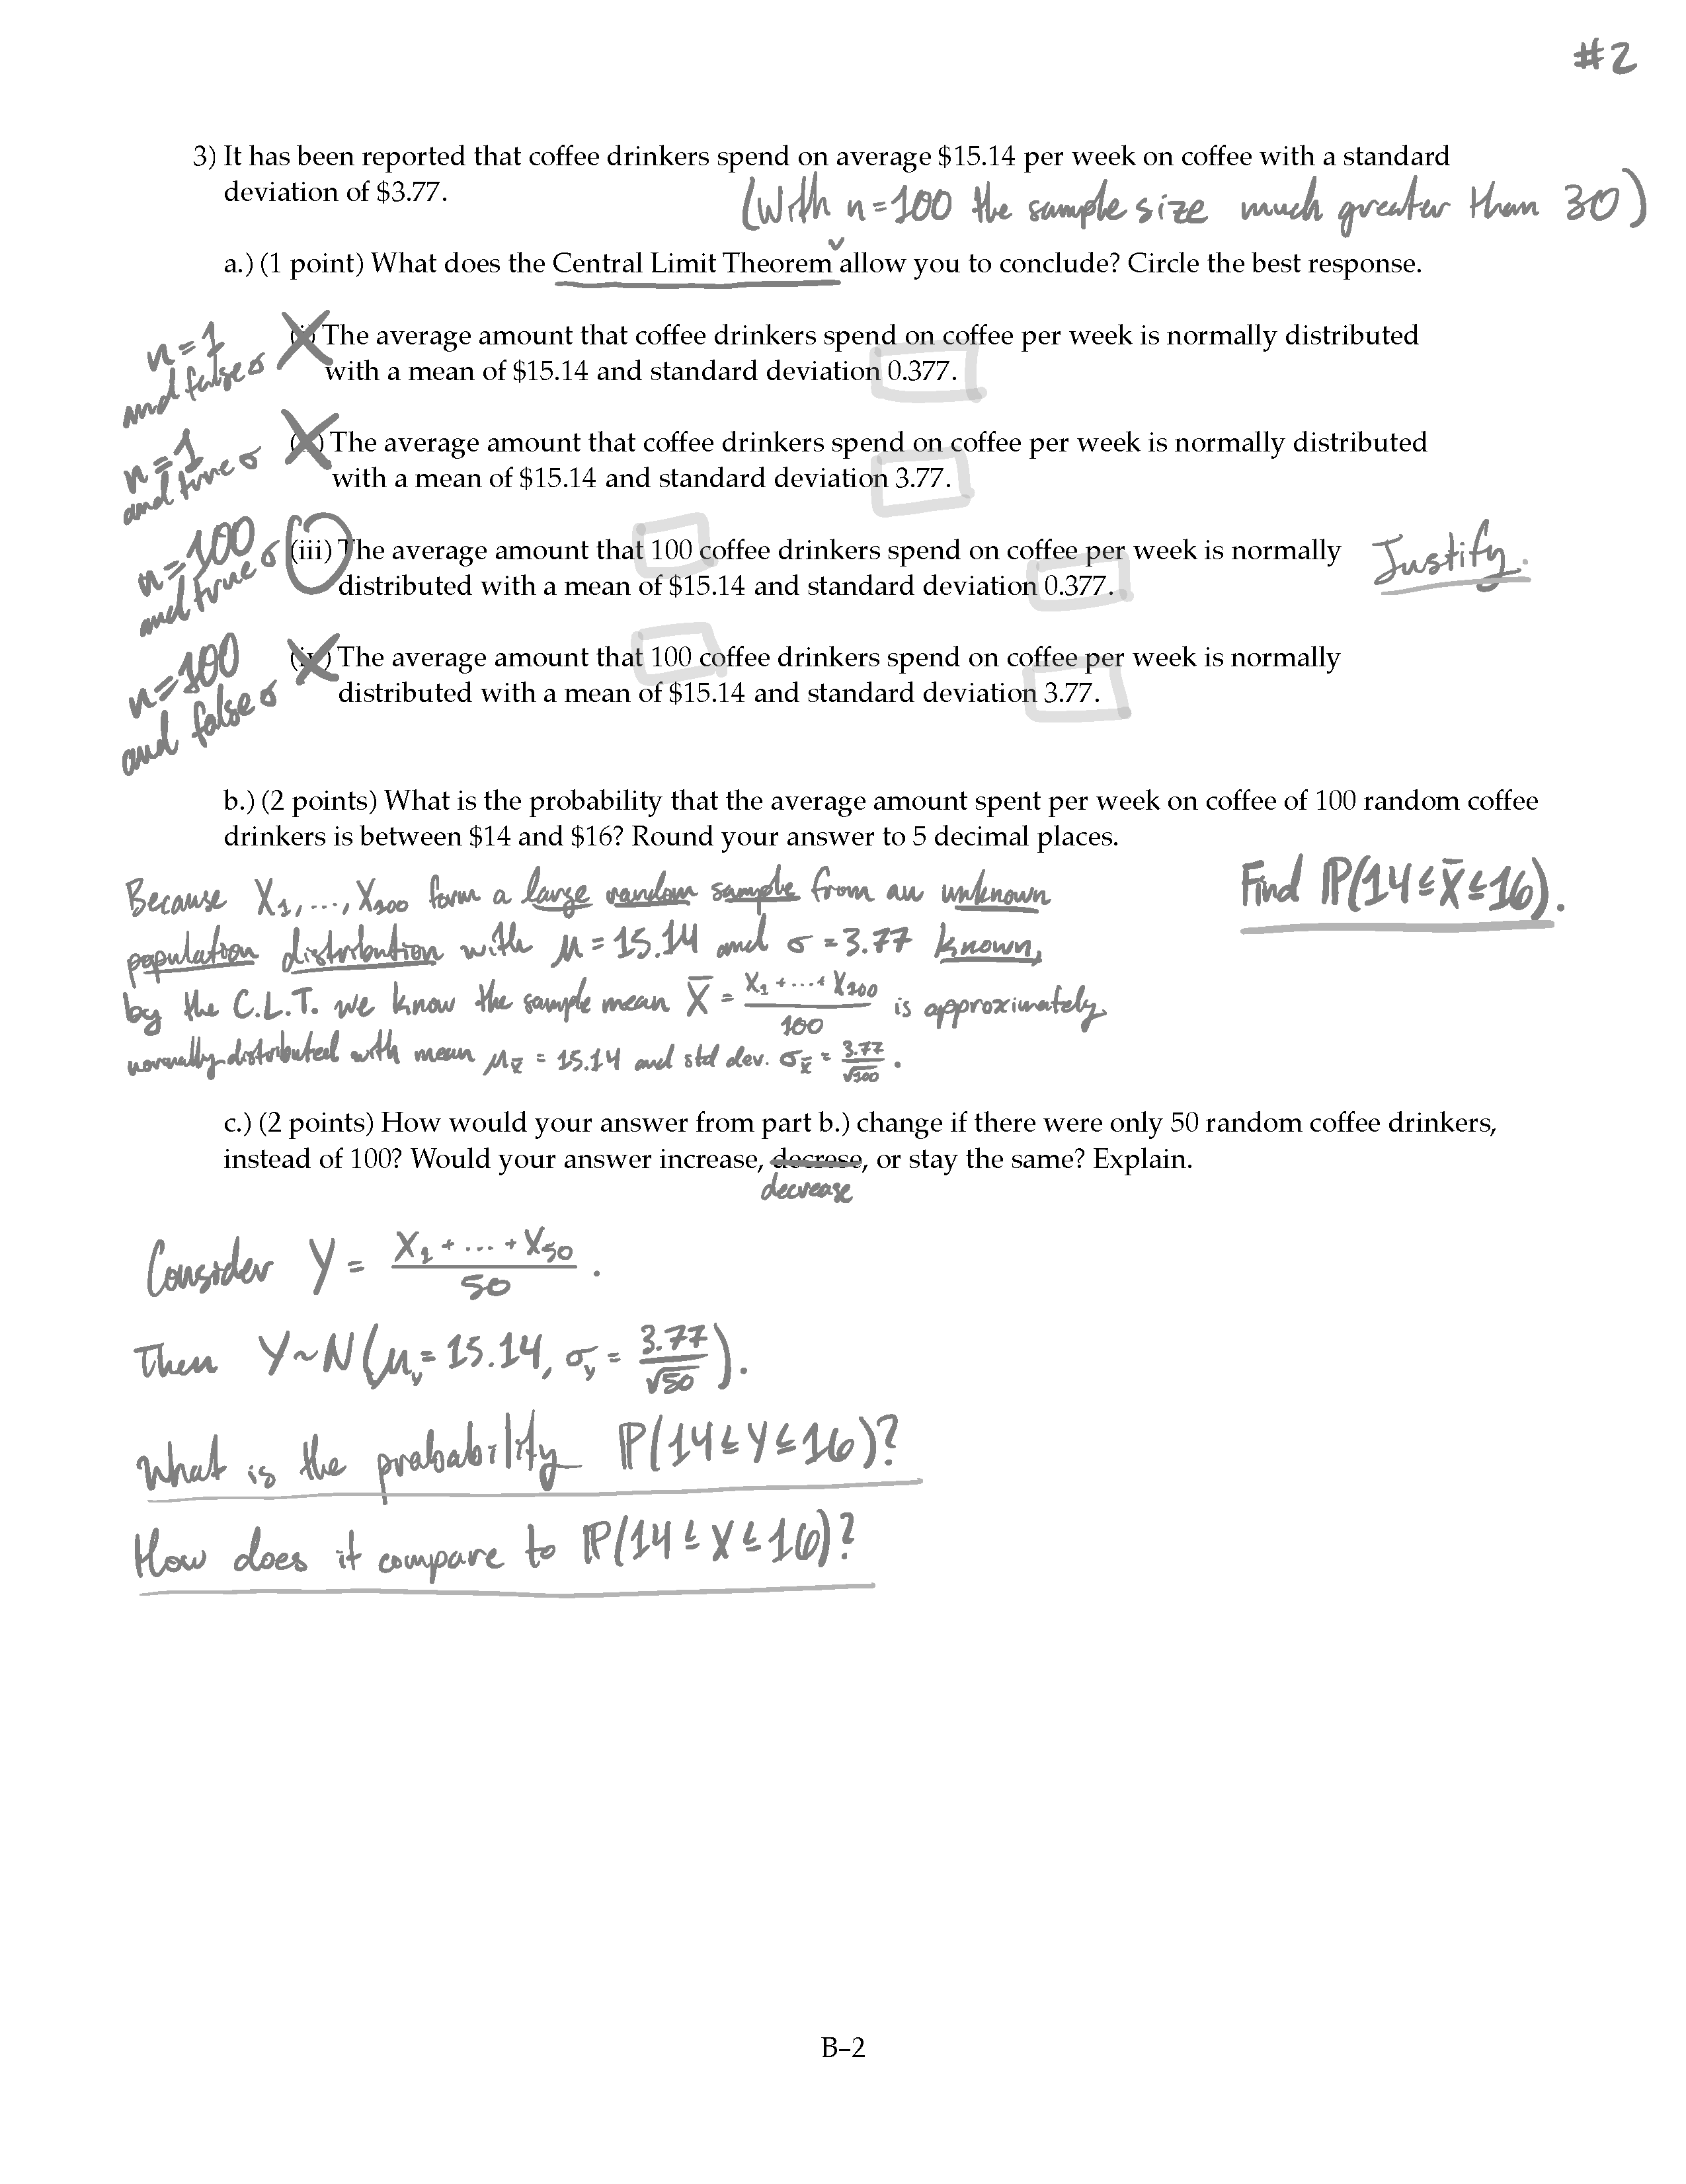 #2
3) It has been reported that coffee drinkers spend on average $15.14 per week on coffee with a standard
deviation of $3.77.
(With n=100 the sample size much greater than 30)
a.) (1 point) What does the Central Limit Theorem allow you to conclude? Circle the best response.
n=1
and false σ
The average amount that coffee drinkers spend on coffee per week is normally distributed
with a mean of $15.14 and standard deviation 0.377.
n=1
and true σ
The average amount that coffee drinkers spend on coffee per week is normally distributed
with a mean of $15.14 and standard deviation 3.77.
n=100
and true σ
(iii) The average amount that 100 coffee drinkers spend on coffee per week is normally
distributed with a mean of $15.14 and standard deviation 0.377.
Justify.
n=100
and false σ
(iv) The average amount that 100 coffee drinkers spend on coffee per week is normally
distributed with a mean of $15.14 and standard deviation 3.77.
b.) (2 points) What is the probability that the average amount spent per week on coffee of 100 random coffee
drinkers is between $14 and $16? Round your answer to 5 decimal places.
Find ℙ(14≤X̄≤16).
Because X₁,...,X₁₀₀ form a large random sample from an unknown
population distribution with μ=15.14 and σ=3.77 known,
by the C.L.T. we know the sample mean X̄ = (X₁+...+X₁₀₀)/100 is approximately
normally distributed with mean μ_x̄ = 15.14 and std dev. σ_x̄ = 3.77/√100.
c.) (2 points) How would your answer from part b.) change if there were only 50 random coffee drinkers,
instead of 100? Would your answer increase, decrese, or stay the same? Explain.
decrease
Consider Y = (X₁+...+X₅₀)/50.
Then Y~N(μ_Y=15.14, σ_Y=3.77/√50).
What is the probability ℙ(14≤Y≤16)?
How does it compare to ℙ(14≤X≤16)?
B–2